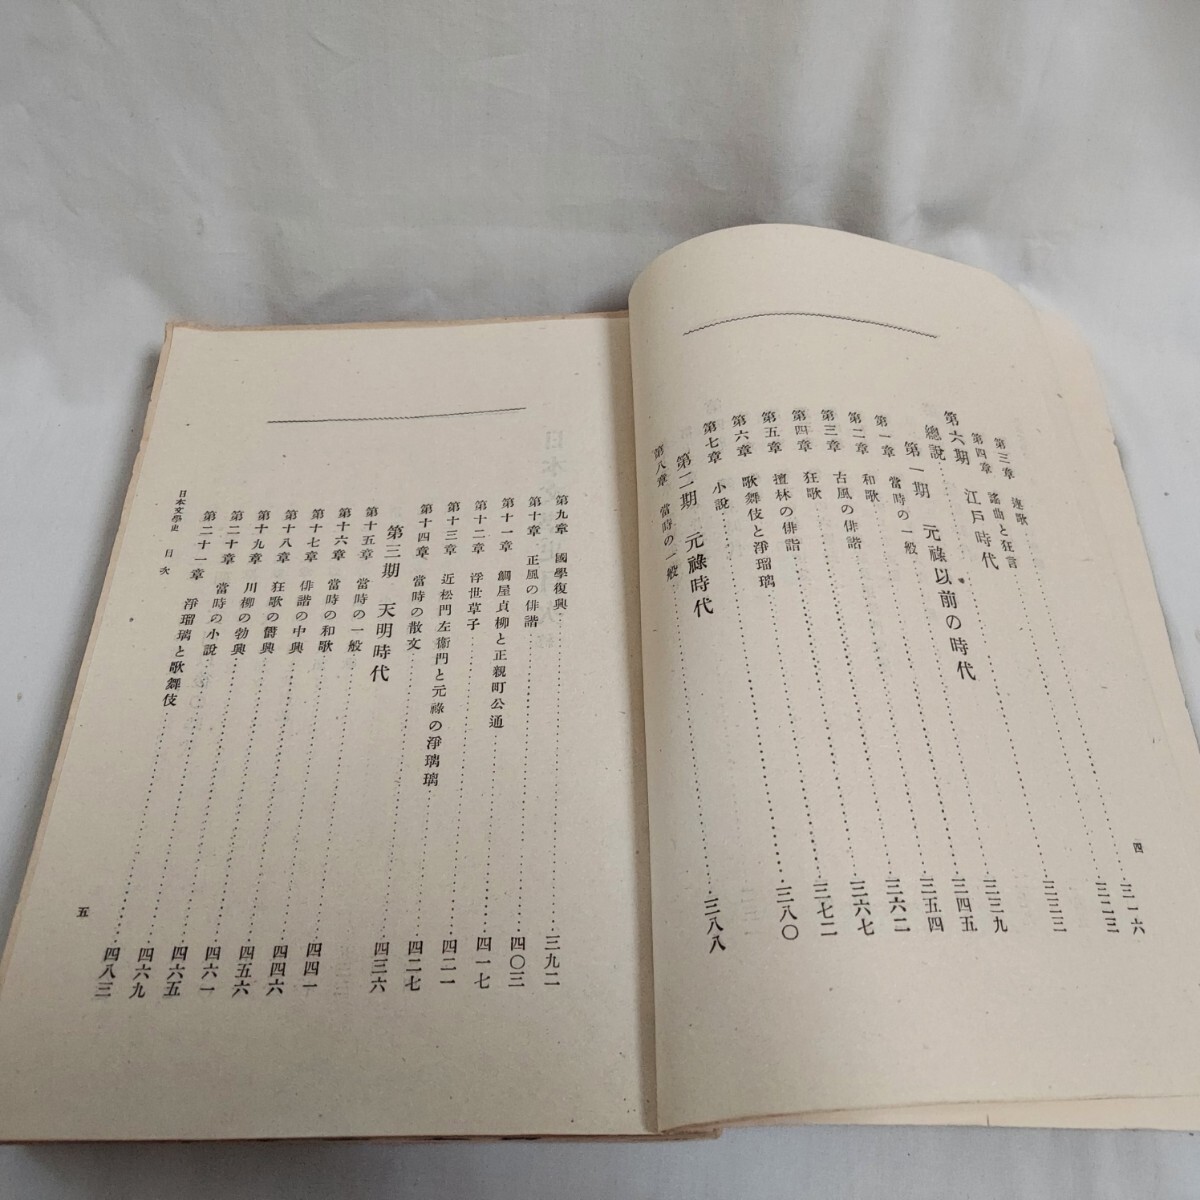 四
第三章 連歌……三一六
第四章 謠曲と狂言……三二三
第六期 江戸時代
總説……三三三
第一期 元祿以前の時代
第一章 當時の一般……三三九
第二章 和歌……三四五
第三章 古風の俳諧……三五四
第四章 狂歌……三六二
第五章 檀林の俳諧……三六七
第六章 歌舞伎と淨瑠璃……三七二
第七章 小説……三八〇
第二期 元祿時代
第八章 當時の一般……三八八
第九章 國學復興……三九二
第十章 正風の俳諧……四〇三
第十一章 鯛屋貞柳と正親町公通……四一七
第十二章 浮世草子……四二一
第十三章 近松門左衞門と元祿の淨瑠璃……四二七
第十四章 當時の散文……四三六
第三期 天明時代
第十五章 當時の一般……四四一
第十六章 當時の和歌……四四六
第十七章 俳諧の中興……四五六
第十八章 狂歌の欝興……四六一
第十九章 川柳の勃興……四六五
第二十章 當時の小説……四六九
第二十一章 淨瑠璃と歌舞伎……四八三
日本文學史 目次
五